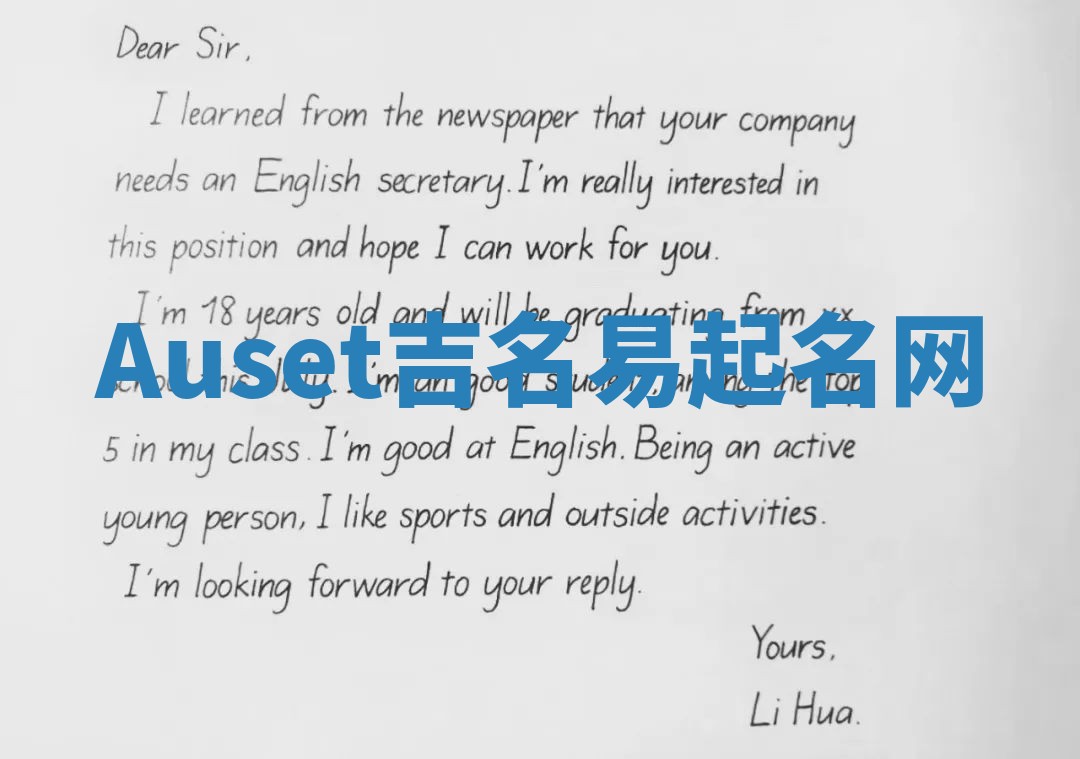 Dear Sir,
I learned from the newspaper that your company
needs an English secretary. I'm really interested in
this position and hope I can work for you.
I'm 18 years old and will be graduating from xx
Auset吉名易起名网
school this July. I'm an good student, among the top
5 in my class. I'm good at English. Being an active
young person, I like sports and outside activities.
I'm looking forward to your reply.
Yours,
Li Hua.